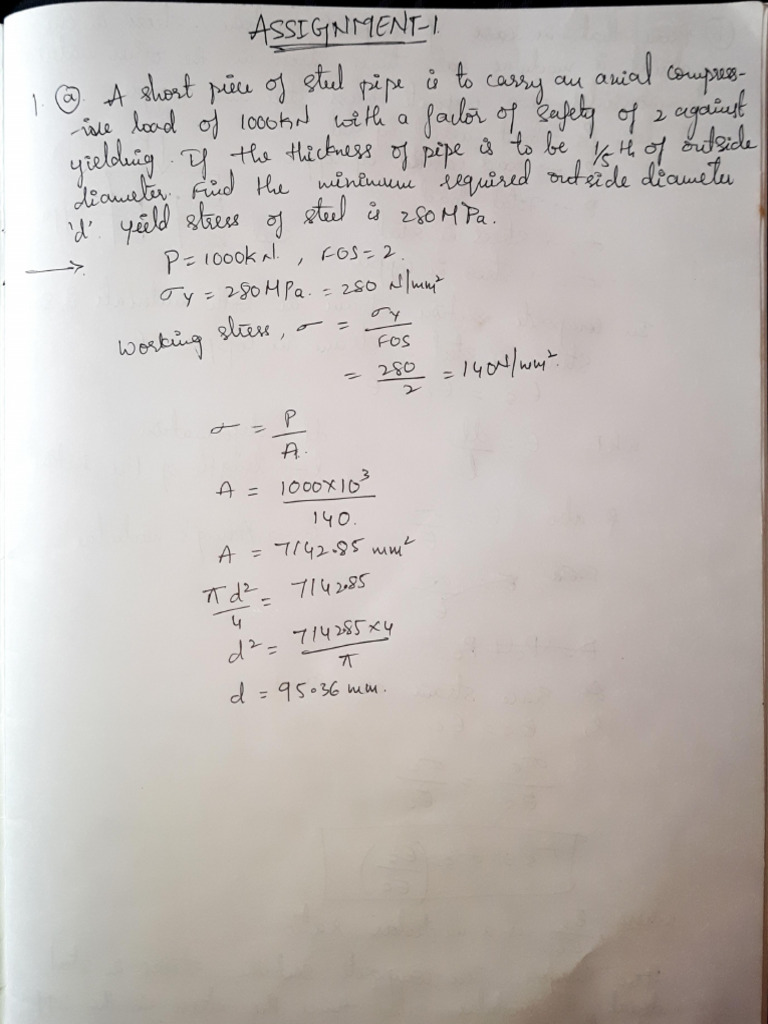 ASSIGNMENT-1.
1. (a). A short piece of steel pipe is to carry an axial compress-
-ive load of 1000kN with a factor of safety of 2 against
yielding. If the thickness of pipe is to be 1/5 th of outside
diameter. Find the minimum required outside diameter
'd'. yield stress of steel is 280MPa.
→ P = 1000kN, FOS = 2.
σy = 280MPa. = 280 N/mm²
Working stress, σ = σy / FOS
= 280 / 2 = 140N/mm².
σ = P / A.
A = 1000×10³ / 140.
A = 7142.85 mm²
πd² / 4 = 7142.85
d² = 714285×4 / π
d = 95.36 mm.